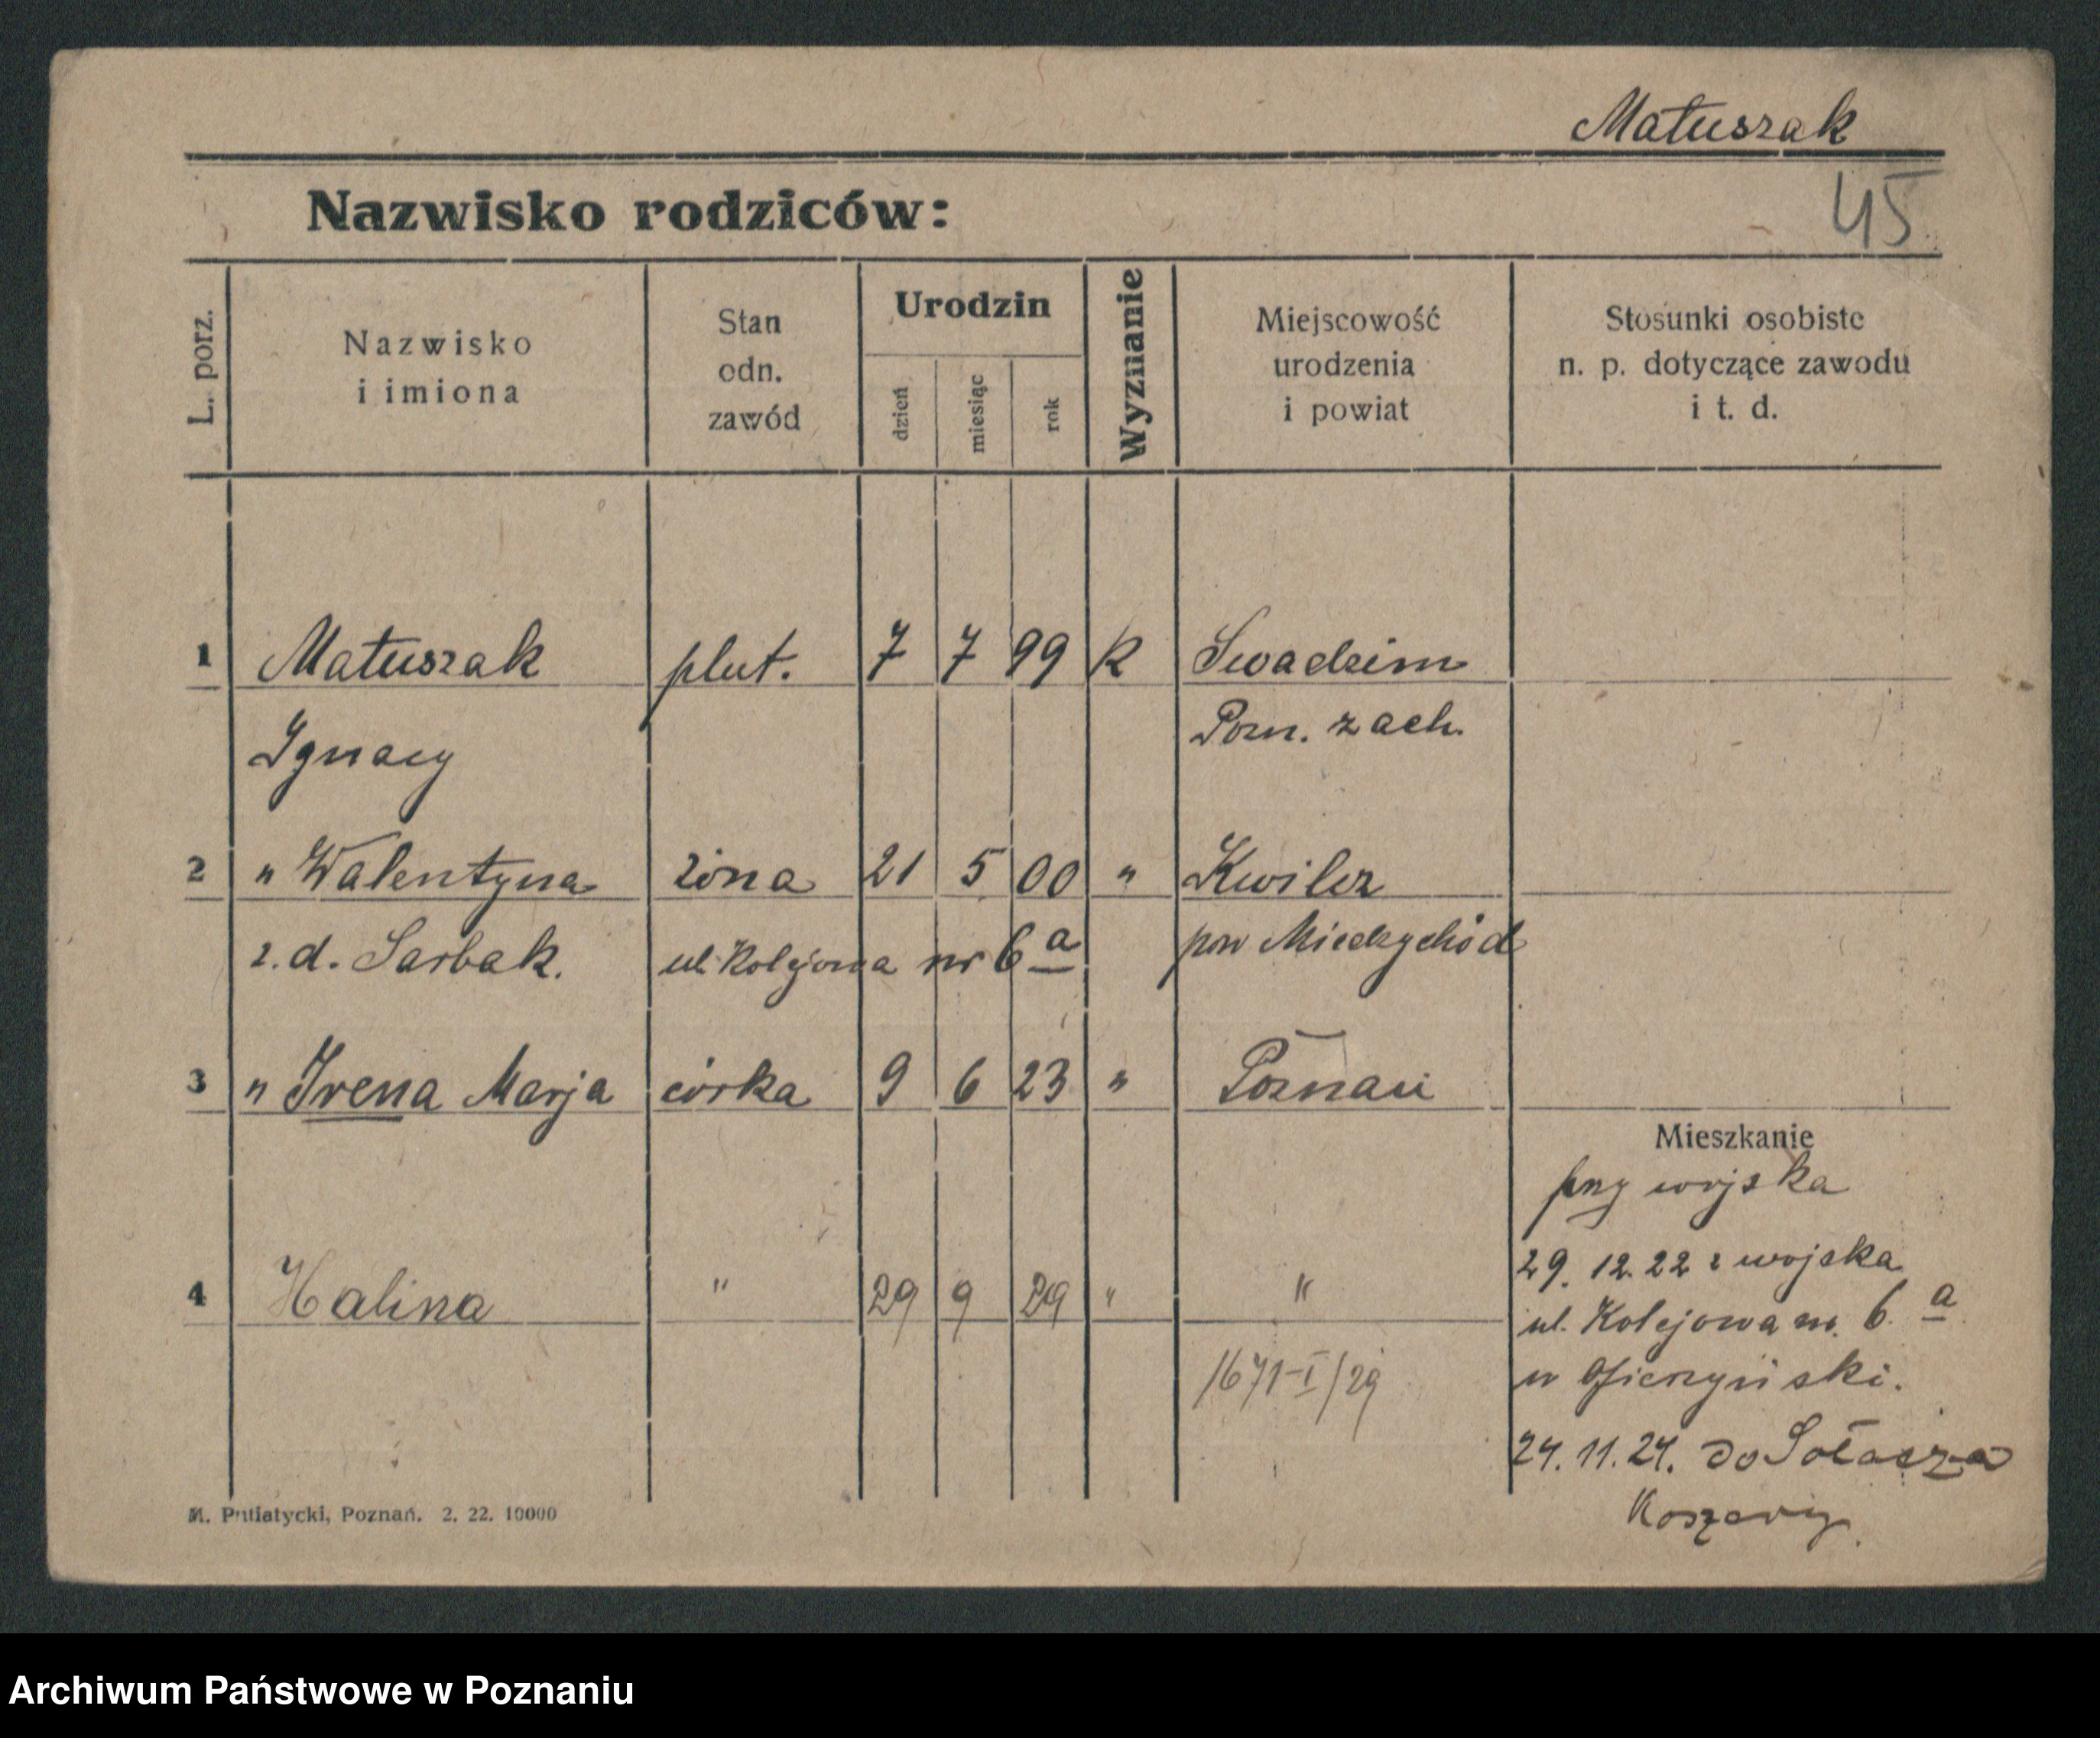 Matuszak
Nazwisko rodziców:
45
L. porz.
Nazwisko
i imiona
Stan
odn.
zawód
Urodzin
dzień
miesiąc
rok
Wyznanie
Miejscowość
urodzenia
i powiat
Stosunki osobiste
n. p. dotyczące zawodu
i t. d.
1 Matuszak plut. 7 7 99 k Swadzim
Ignacy Pozn. zach.
2 " Walentyna żona 21 5 00 " Kwilcz
z. d. Sarbak. ul. Kolejowa nr 6 a pow Międzychód
3 " Irena Marja córka 9 6 23 " Poznań
Mieszkanie
przy wojska
4 Halina " 29 9 29 " "
29. 12. 22 z wojska
ul. Kolejowa nr. 6. a
1671-I/29
u Ofierzyński.
24. 11. 24. do Sołacza
Koszary.
M. Putiatycki, Poznań. 2. 22. 10000
Archiwum Państwowe w Poznaniu